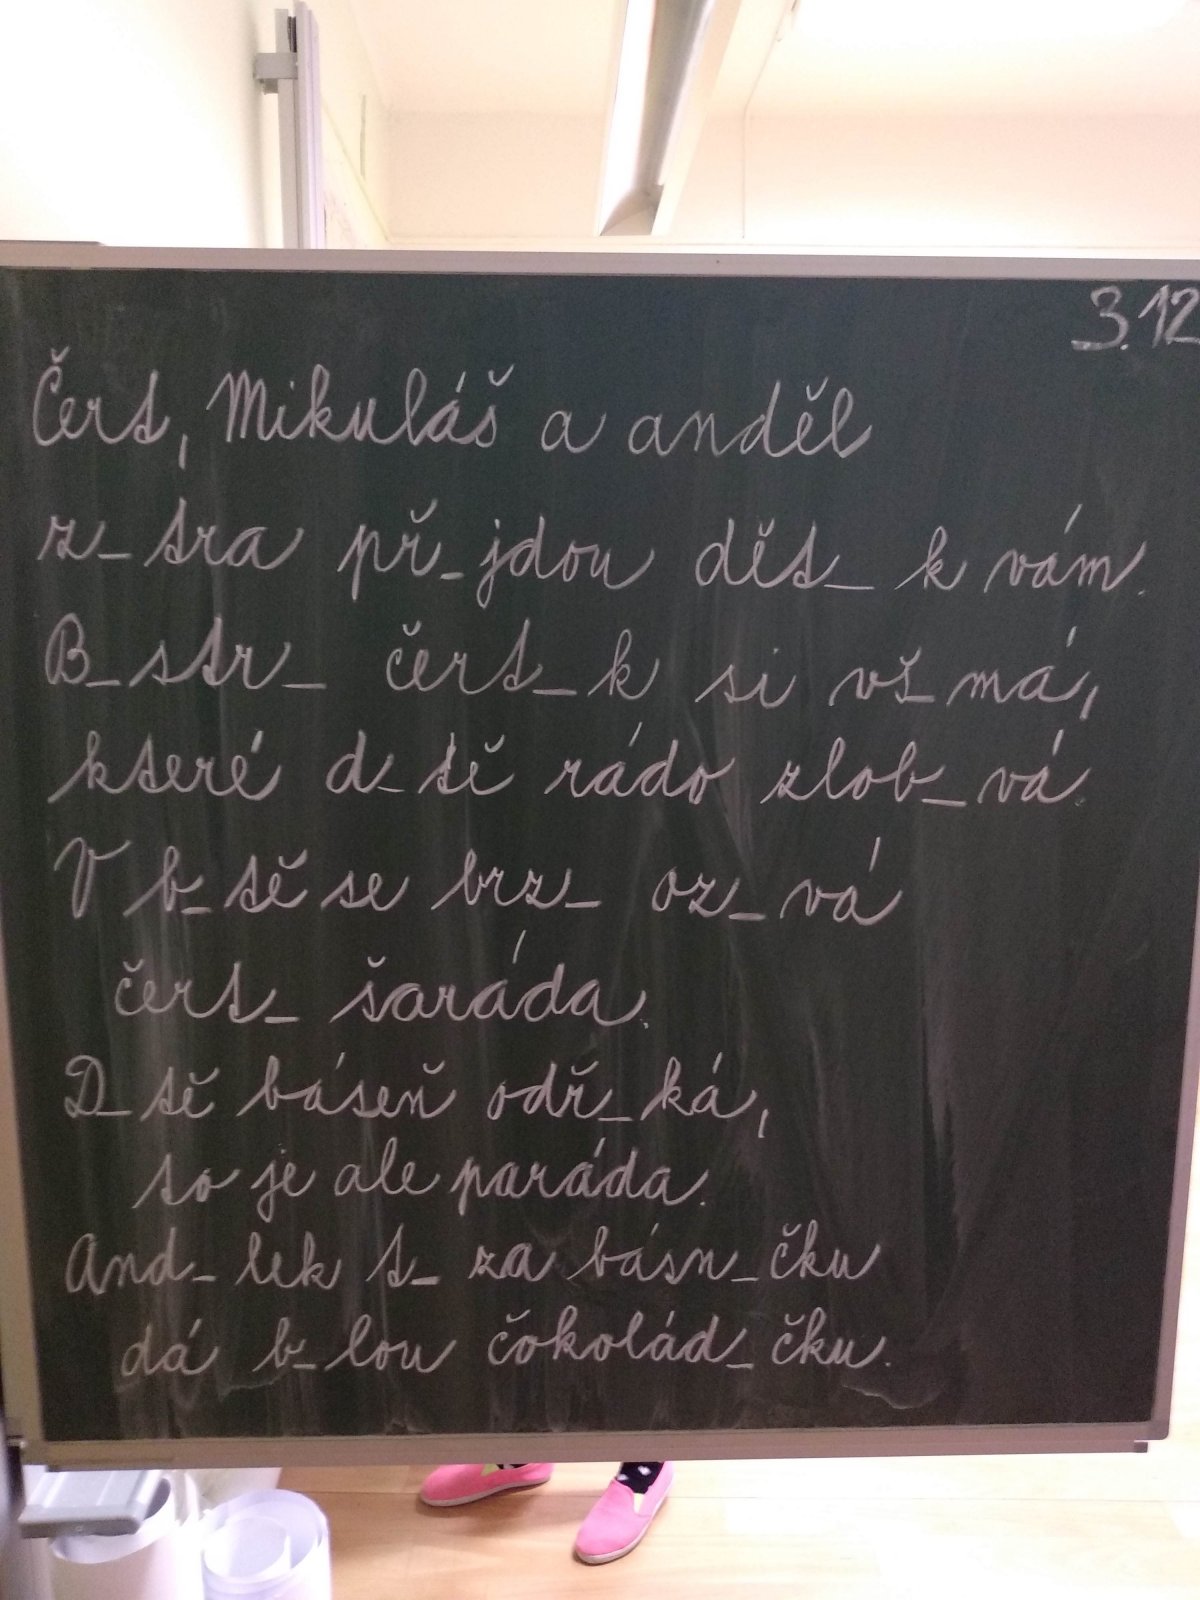 3.12
Čert, Mikuláš a anděl
z_tra př_jdou dět_ k vám.
B_str_ čert_k si vš_má,
které d_tě rádo zlob_vá.
V b_tě se brz_ oz_vá
čert_ šaráda.
D_tě báseň odř_ká,
to je ale paráda.
And_lek t_ za básn_čku
dá b_lou čokolád_čku.